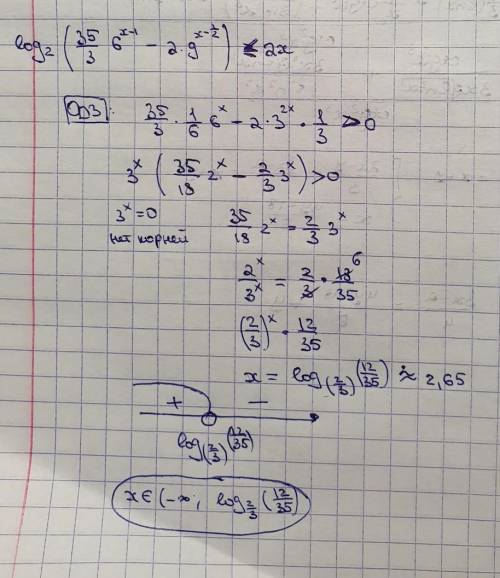 log₂ (35/3 6^(x-1) - 2·9^(x-1/2)) ≤ 2x
ОДЗ: 35/3 · 1/6 6^x - 2·3^(2x) · 1/3 > 0
3^x (35/18 2^x - 2/3 3^x) > 0
3^x = 0 35/18 2^x = 2/3 3^x
нет корней
2^x/3^x = 2/3 · 18/35 6
(2/3)^x = 12/35
x = log_(2/3) (12/35) ≈ 2,65
+ −
log_(2/3) (12/35)
x ∈ (-∞; log_(2/3) (12/35)